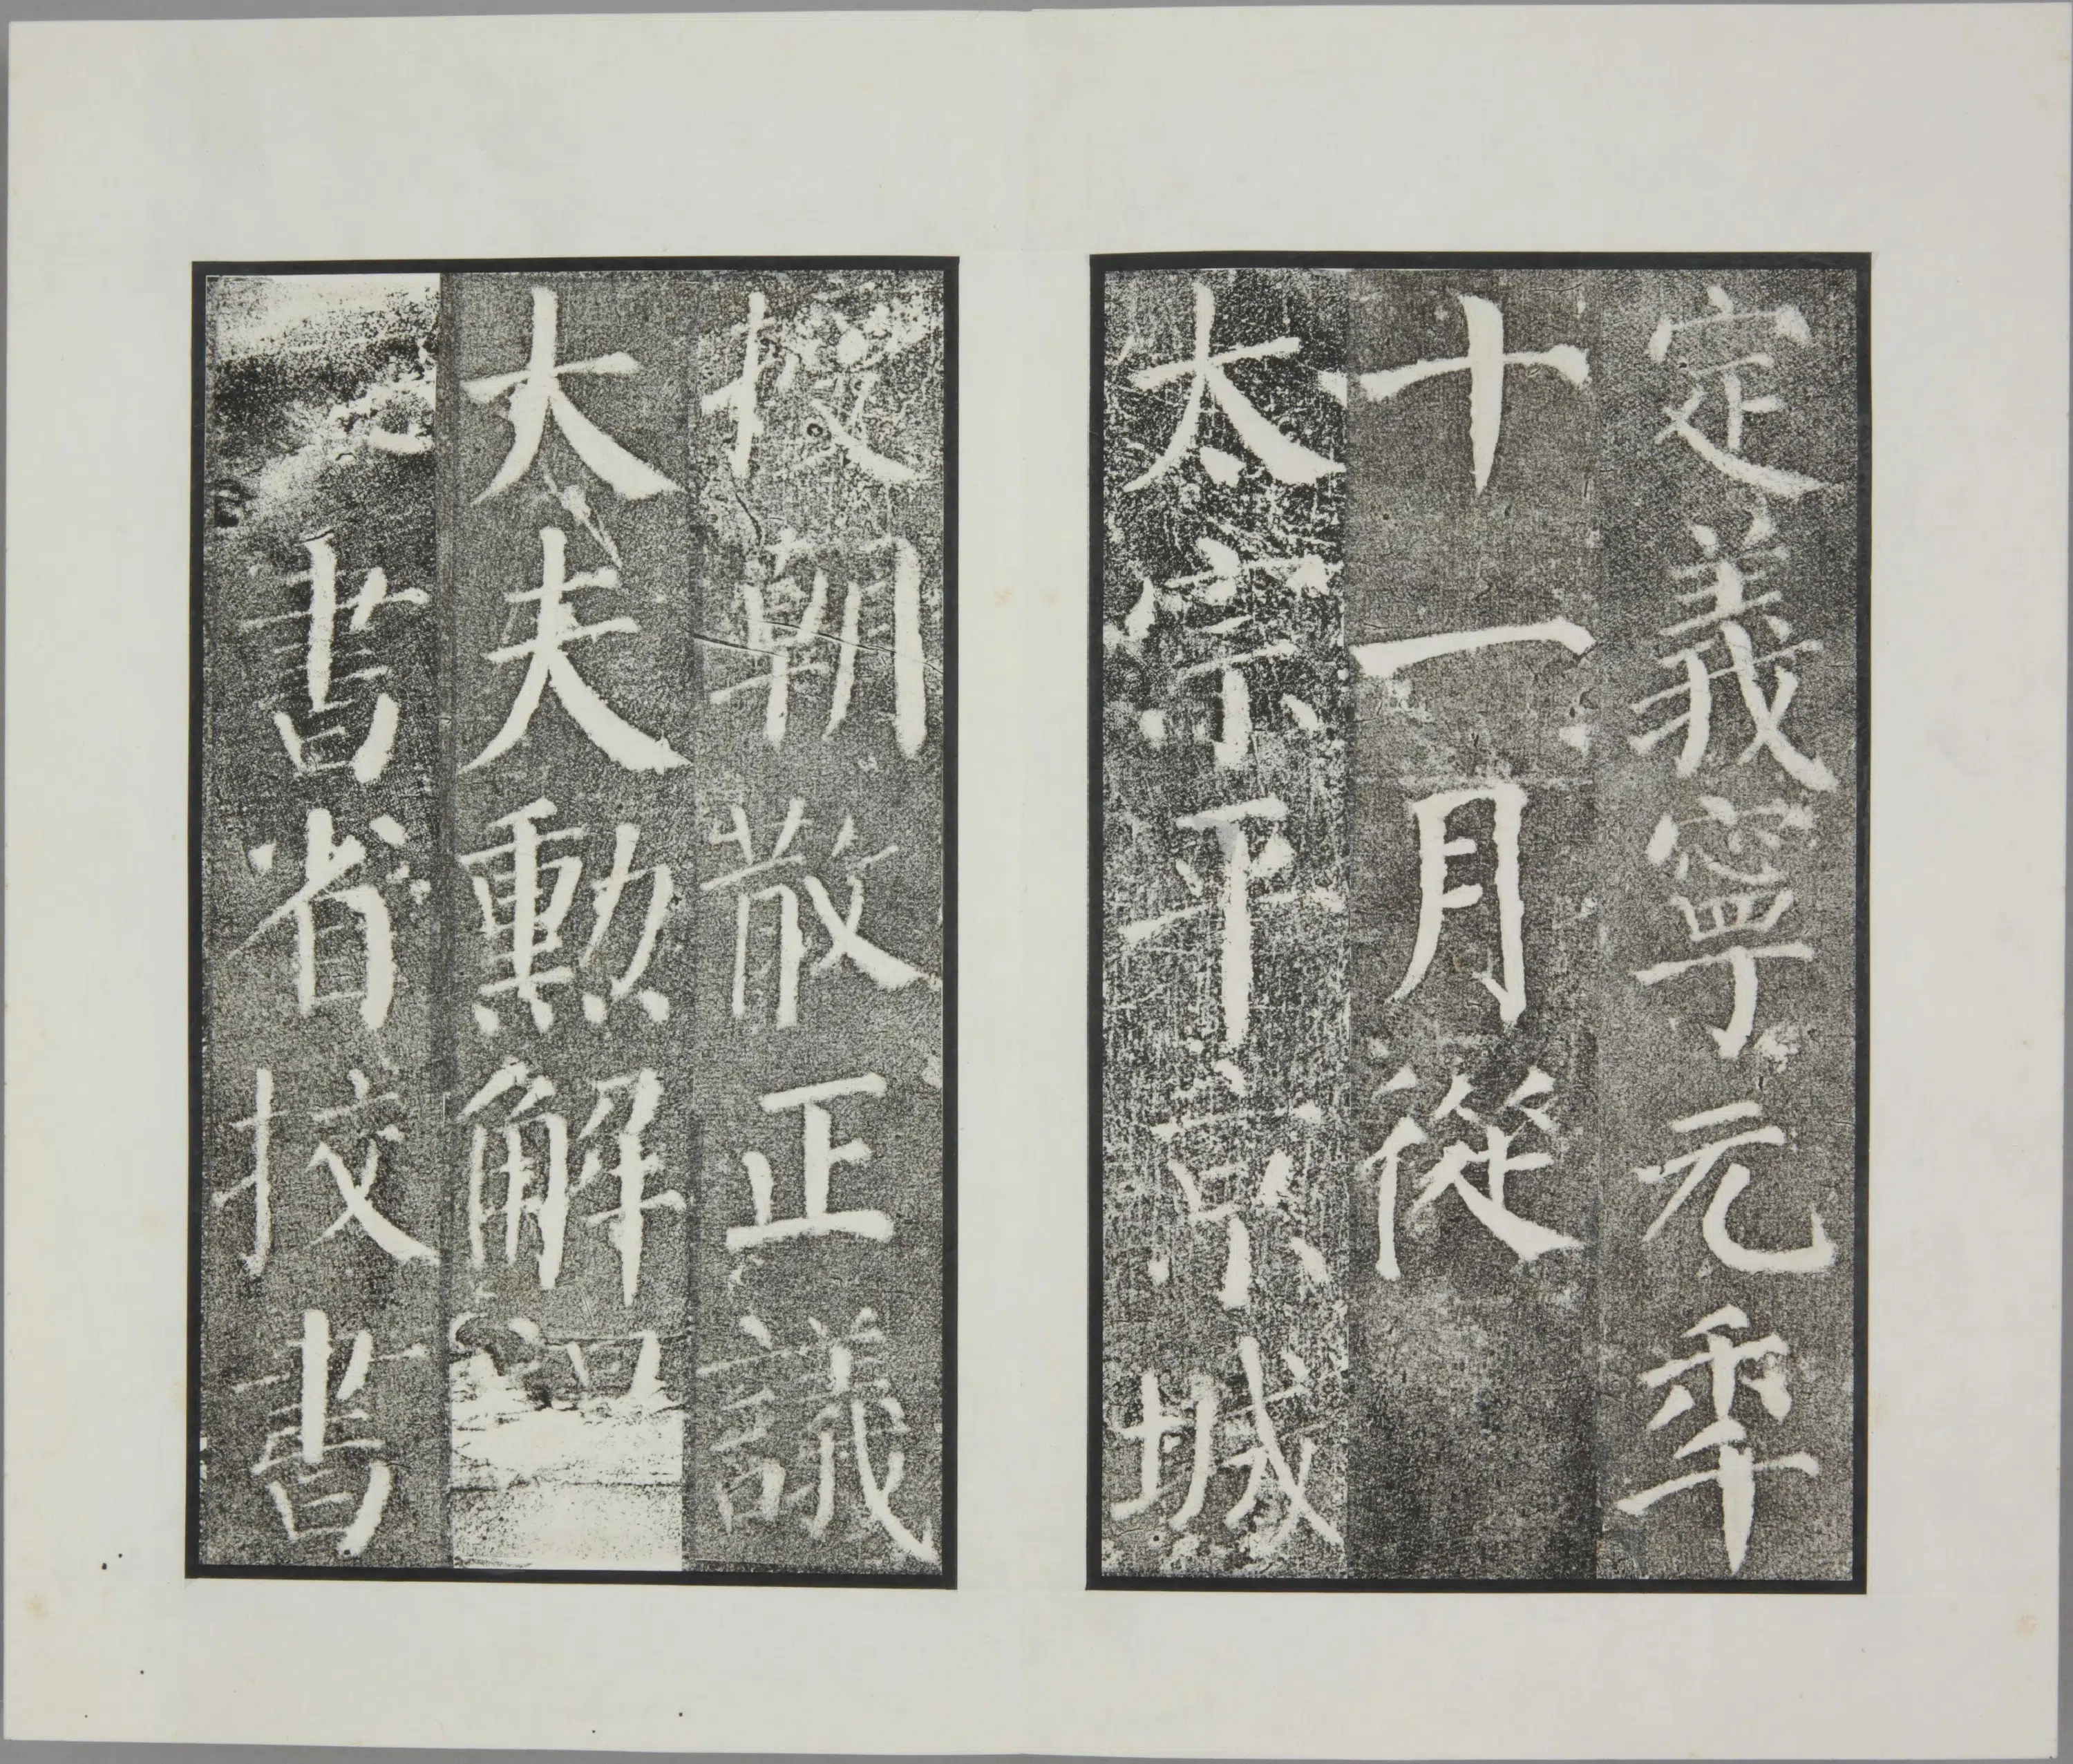 定義寧元年
十一月從
太宗平京城
授朝散正議
大夫勳解褐
祕書省挍書